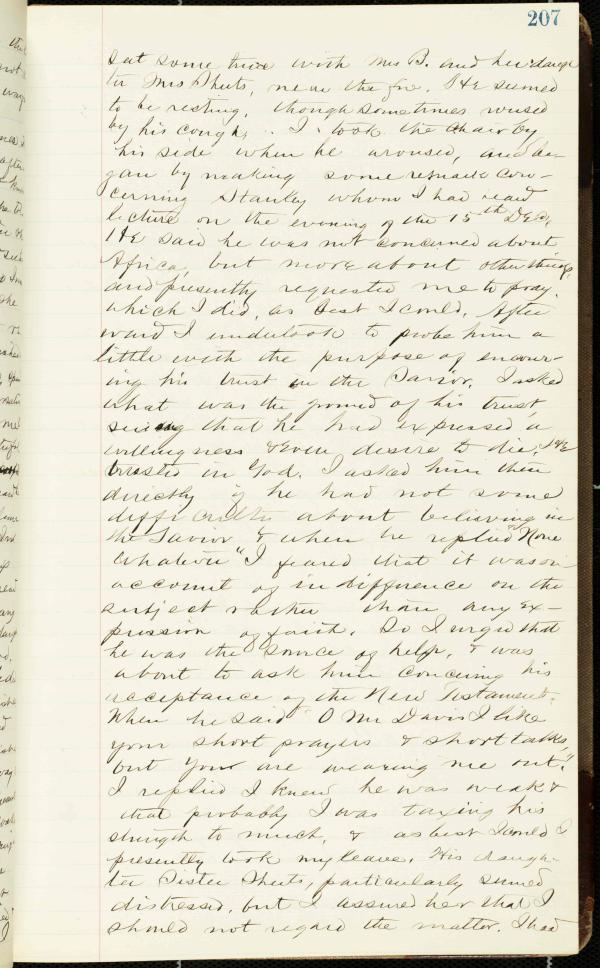 207
sat some time with Mrs B. and her daugh
ter Mrs Sheets, near the fire. He seemed
to be resting, though sometimes roused
by his cough. I took the chair by
his side when he aroused, and be-
gan by making some remark con-
cerning Stanley whom I had read
lecture on the evening of the 15th Dec,
He said he was not concerned about
Africa, but more about other things,
and presently requested me to pray.
which I did, as best I could. After
ward I undertook to probe him a
little with the purpose of encour-
ing his trust in the Savior. I asked
what was the ground of his trust,
seeing that he had expressed a
willingness & even desire to die. He
trusted in God. I asked him then
directly if he had not some
difficulties about believing in
the Savior & when he replied "None
whatever" I feared that it was on
account of indifference on the
subject rather than any ex-
pression of faith. So I urged that
he was the source of help, & was
about to ask him concerning his
acceptance of the New Testament.
When he said "O Mr Davis I like
your short prayers & short talks,
but you are wearing me out."
I replied I knew he was weak &
that probably I was taxing his
strength to much, & as best I could I
presently took my leave. His daugh-
ter Sister Sheets, particularly seemed
distressed, but I assured her that I
should not regard the matter. I had